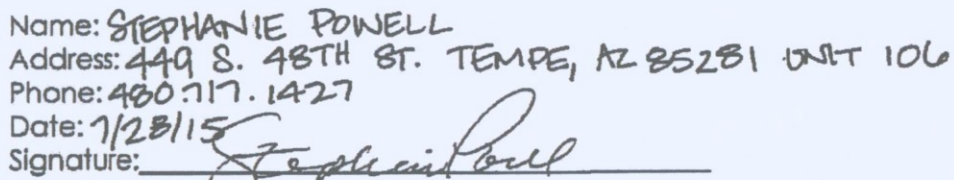 Name: STEPHANIE POWELL
Address: 449 S. 48TH ST. TEMPE, AZ 85281 UNIT 106
Phone: 480.717.1427
Date: 7/28/15
Signature: Stephanie Powell